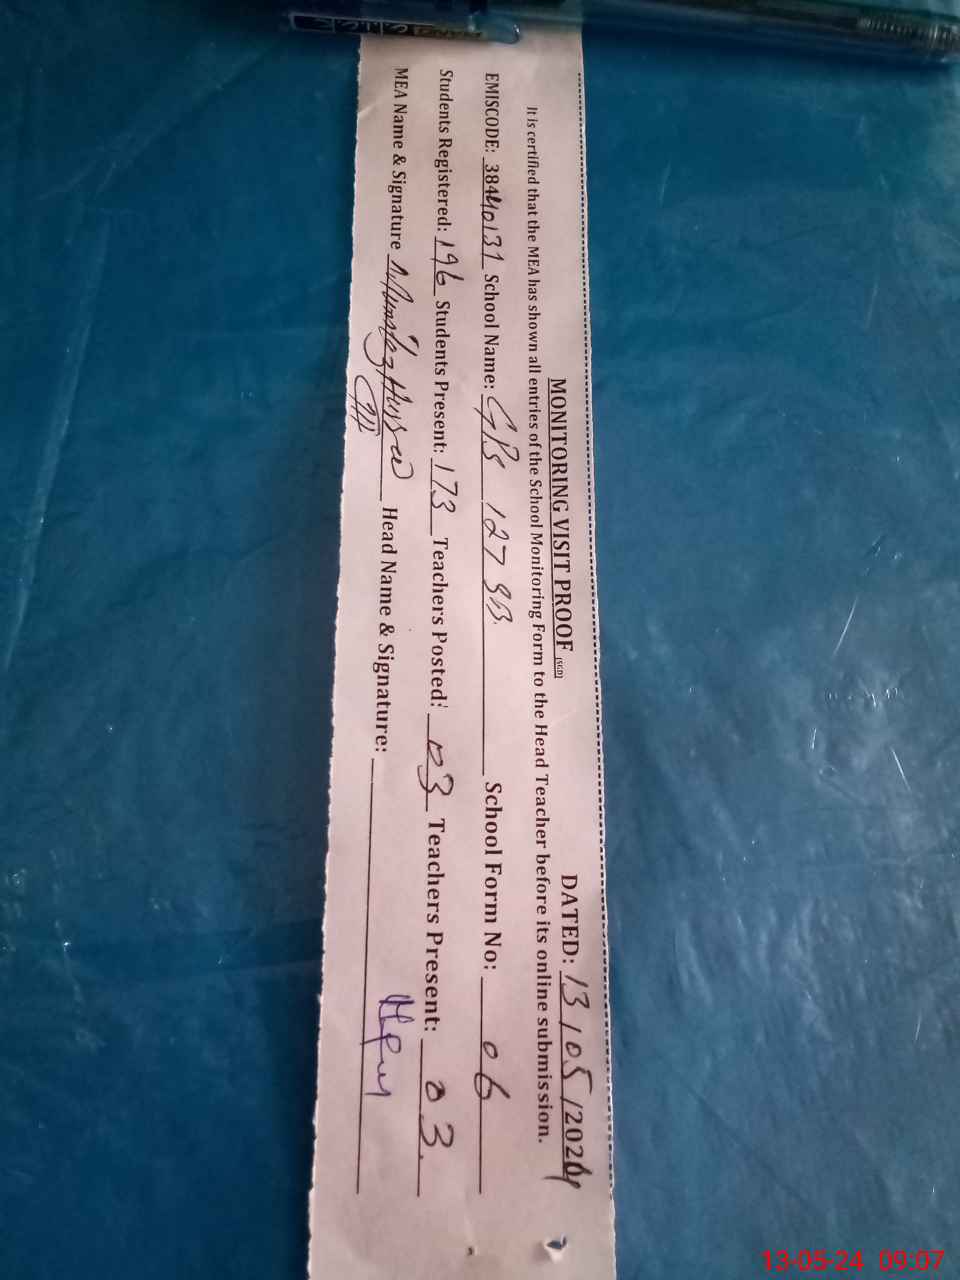 MONITORING VISIT PROOF (SGD) DATED: 13/05/2024
It is certified that the MEA has shown all entries of the School Monitoring Form to the Head Teacher before its online submission.
EMISCODE: 38440131 School Name: GPS 127 SB. School Form No: 06
Students Registered: 196 Students Present: 173 Teachers Posted: 03 Teachers Present: 03.
MEA Name & Signature Head Name & Signature:
13-05-24 09:07